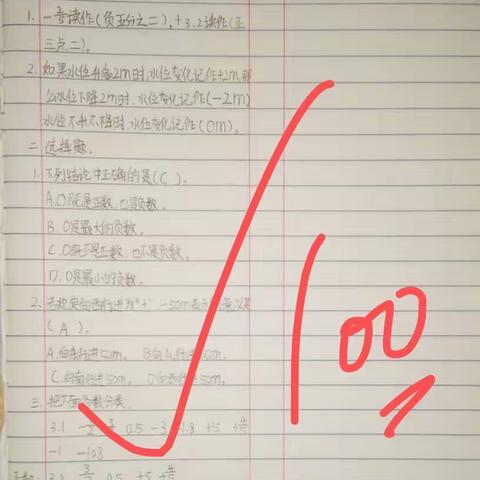 1. -2/5读作(负五分之二),+3.2读作(正
三点二)。
2. 如果水位升高2m时,水位变化记作+2m,那
么水位下降2m时,水位变化记作(-2m)
水位不升不降时,水位变化记作(0m)。
二 选择题。
1. 下列结论中正确的是(C)。
A. 0既是正数,也是负数。
B. 0是最大的负数。
C. 0既不是正数,也不是负数。
D. 0是最小的负数。
2. 向西行进为"+",-50m表示的意义是
(A)。
A. 向东行进50m。 B向北行进50m。
C. 向南行进50m。 D向西行进50m。
三. 把下面各数分类。
3.1 0.5 -3 -1.8 +5
-1 -108
3.1 0.5 +5
100